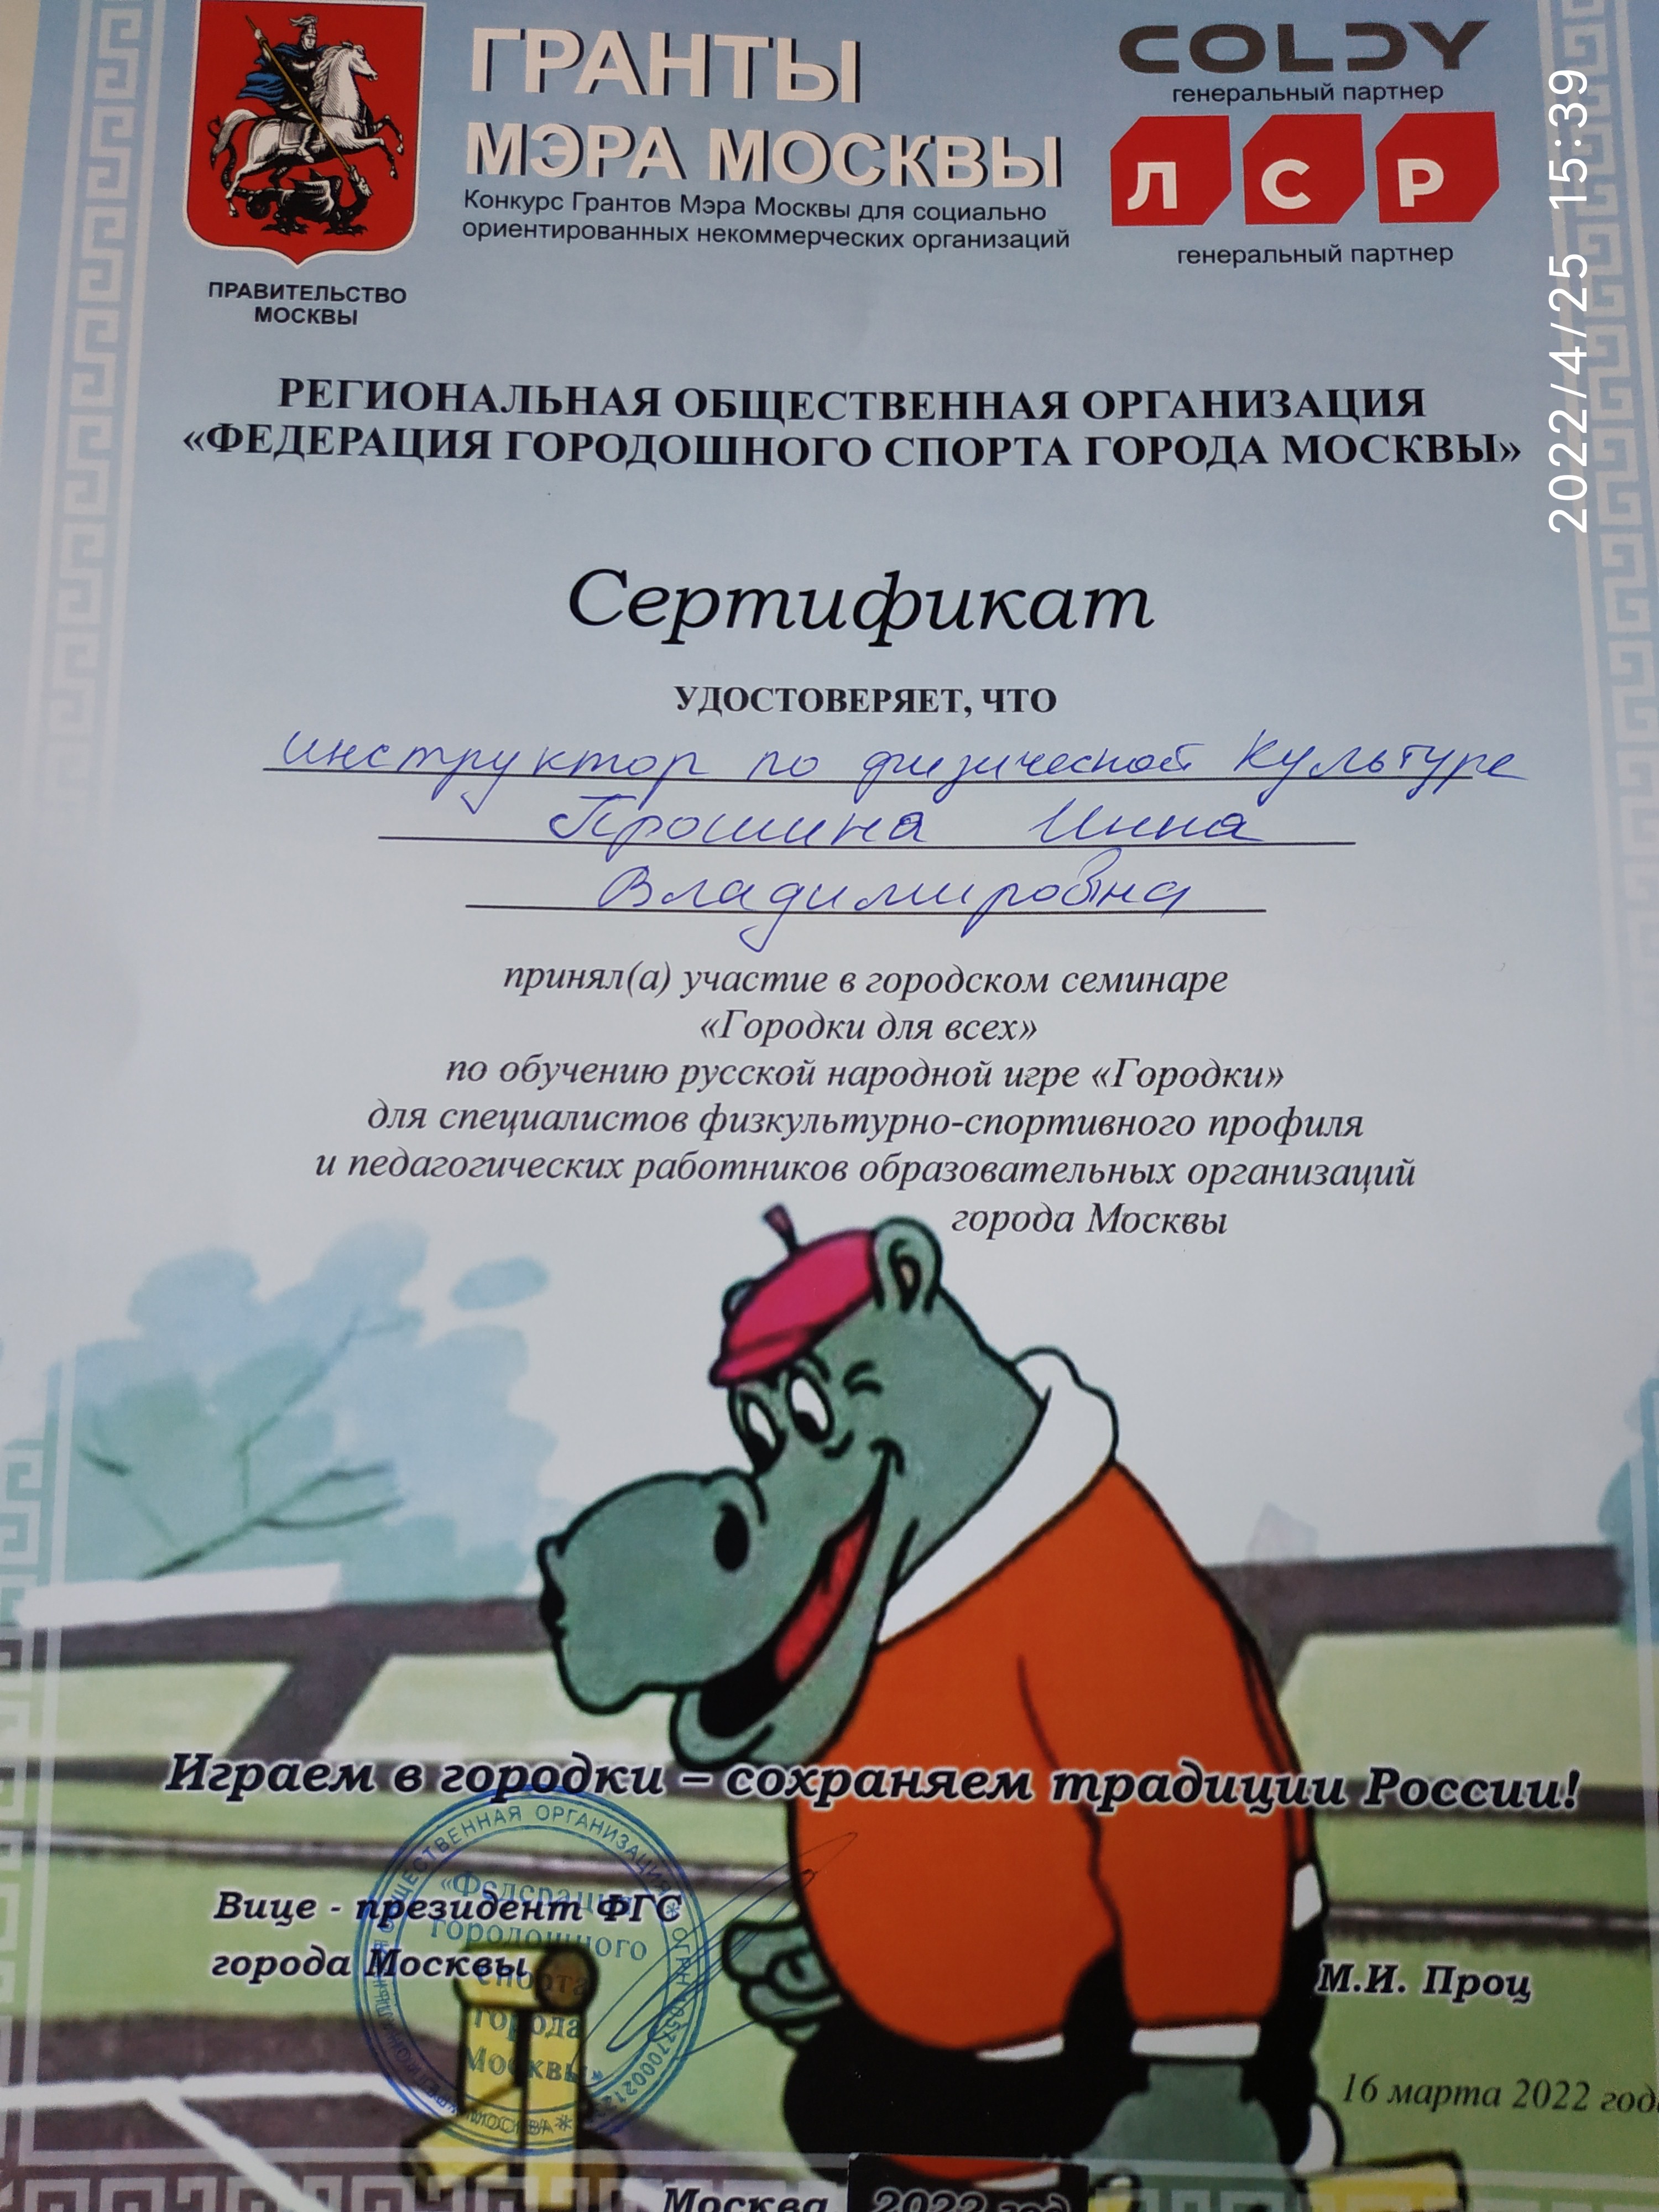 ГРАНТЫ
МЭРА МОСКВЫ
Конкурс Грантов Мэра Москвы для социально
ориентированных некоммерческих организаций
ПРАВИТЕЛЬСТВО
МОСКВЫ
COLDY
генеральный партнер
ЛСР
генеральный партнер
2022/4/25 15:39
РЕГИОНАЛЬНАЯ ОБЩЕСТВЕННАЯ ОРГАНИЗАЦИЯ
«ФЕДЕРАЦИЯ ГОРОДОШНОГО СПОРТА ГОРОДА МОСКВЫ»
Сертификат
УДОСТОВЕРЯЕТ, ЧТО
инструктор по физической культуре
Прошина Инна
Владимировна
принял(а) участие в городском семинаре
«Городки для всех»
по обучению русской народной игре «Городки»
для специалистов физкультурно-спортивного профиля
и педагогических работников образовательных организаций
города Москвы
Играем в городки – сохраняем традиции России!
Вице - президент ФГС
города Москвы
М.И. Проц
ОБЩЕСТВЕННАЯ ОРГАНИЗАЦИЯ
«Федерация
городошного
спорта
города
Москвы»
МОСКВА
16 марта 2022 год
Москва 2022 год